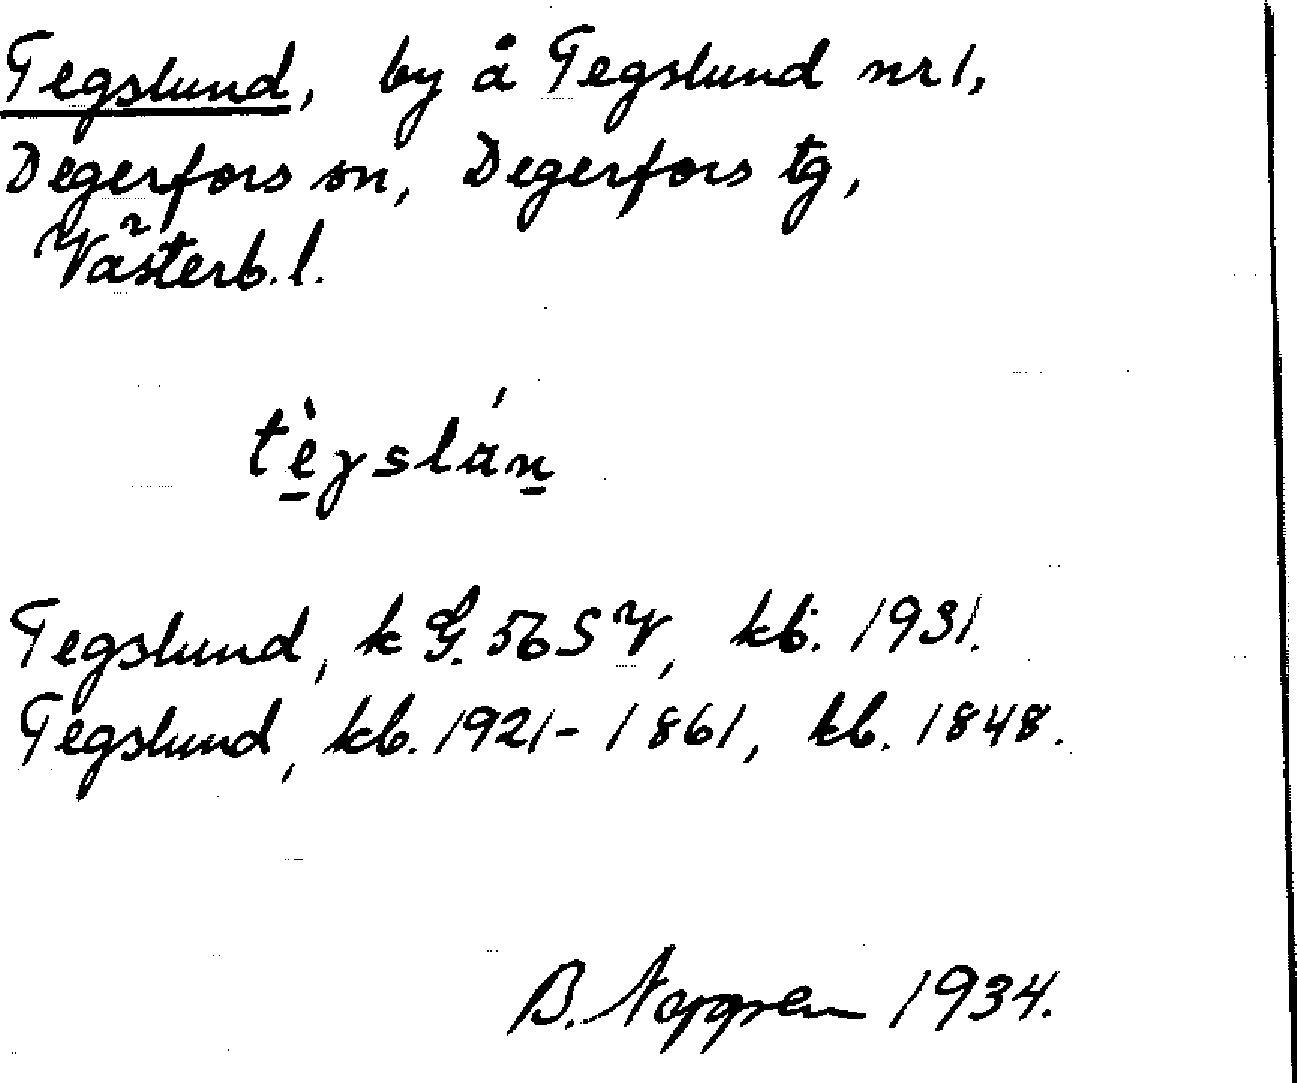 Tegslund, by å Tegslund nr 1,
Degerfors sn, Degerfors tg,
Västerb. l.
tè̱γslán̠
Tegslund, k G. 56 S V, kb. 1931.
Tegslund, kb. 1921-1861, kb. 1848.
B. 1934.